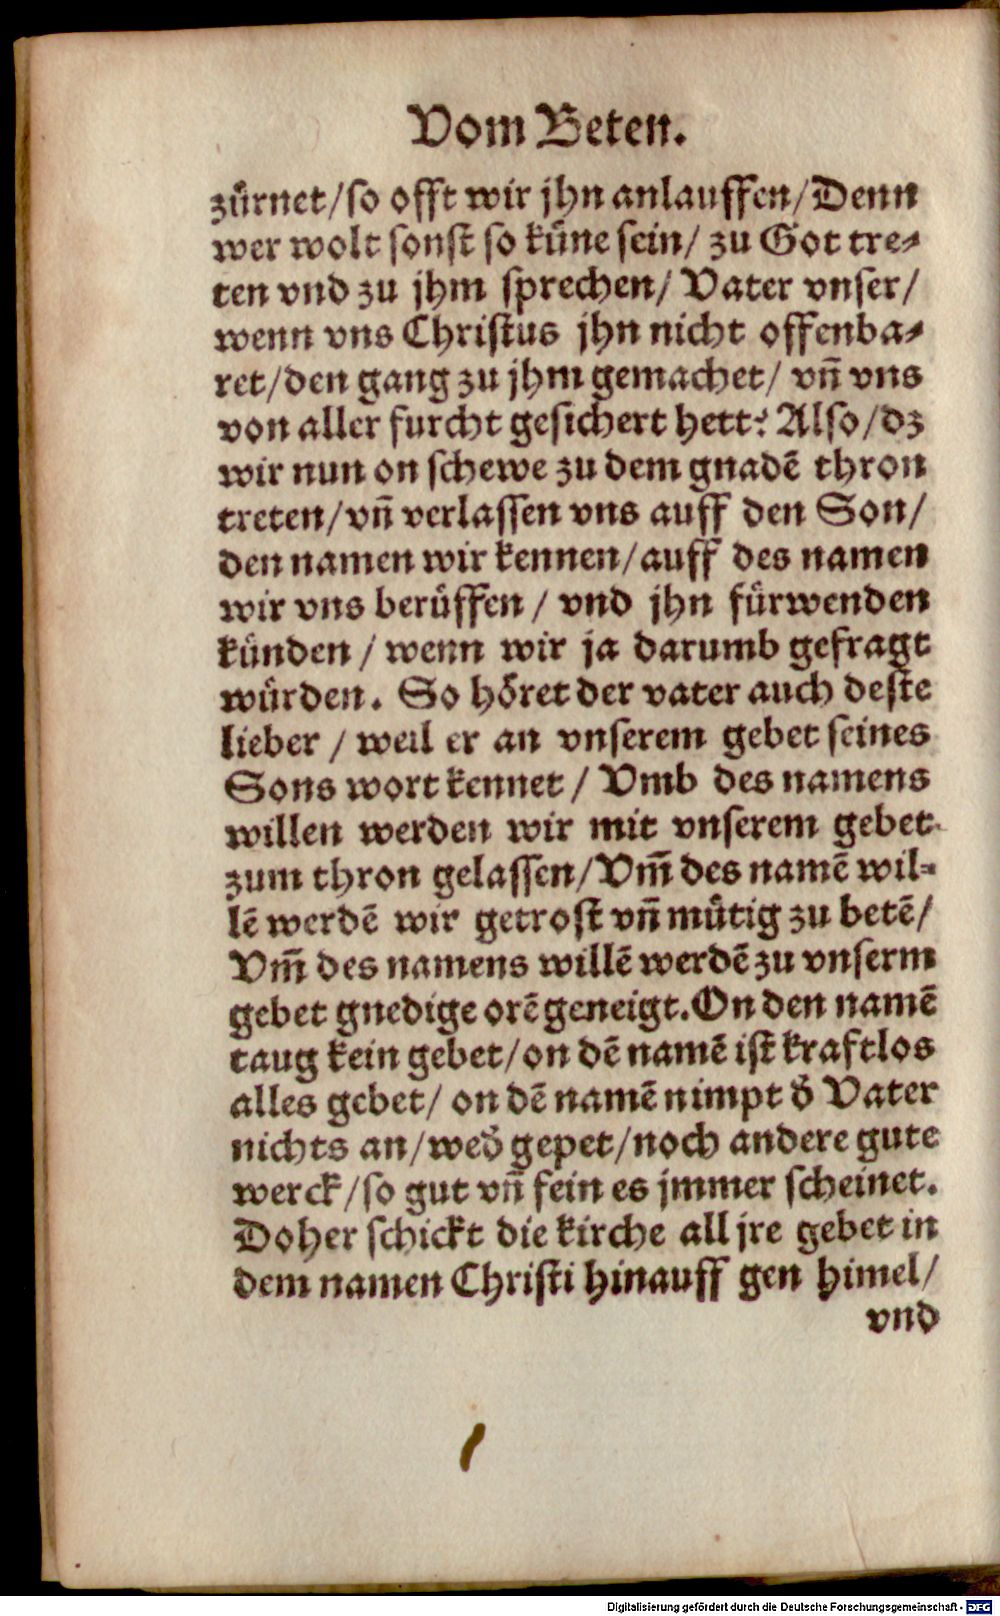 Vom Beten.
zuͤrnet/so offt wir jhn anlauffen/Denn
wer wolt sonst so kuͤne sein/ zu Got tre⸗
ten vnd zu jhm sprechen/ Vater vnser/
wenn vns Christus jhn nicht offenba⸗
ret/den gang zu jhm gemachet/ vn̄ vns
von aller furcht gesichert hett? Also/dz
wir nun on schewe zu dem gnadē thron
treten/vn̄ verlassen vns auff den Son/
den namen wir kennen/auff des namen
wir vns beruͤffen / vnd jhn fuͤrwenden
kuͤnden / wenn wir ja darumb gefragt
wuͤrden. So hoͤret der vater auch deste
lieber / weil er an vnserem gebet seines
Sons wort kennet / Vmb des namens
willen werden wir mit vnserem gebet
zum thron gelassen/Vm̄ des namē wil⸗
lē werdē wir getrost vn̄ muͤtig zu betē/
Vm̄ des namens willē werdē zu vnserm
gebet gnedige orē geneigt. On den namē
taug kein gebet/on dē namē ist kraftlos
alles gebet/ on dē namē nimpt d̕ Vater
nichts an/wed̕ gepet/noch andere gute
werck/so gut vn̄ fein es jmmer scheinet.
Doher schickt die kirche all jre gebet in
dem namen Christi hinauff gen himel/
vnd
Digitalisierung gefördert durch die Deutsche Forschungsgemeinschaft - DFG